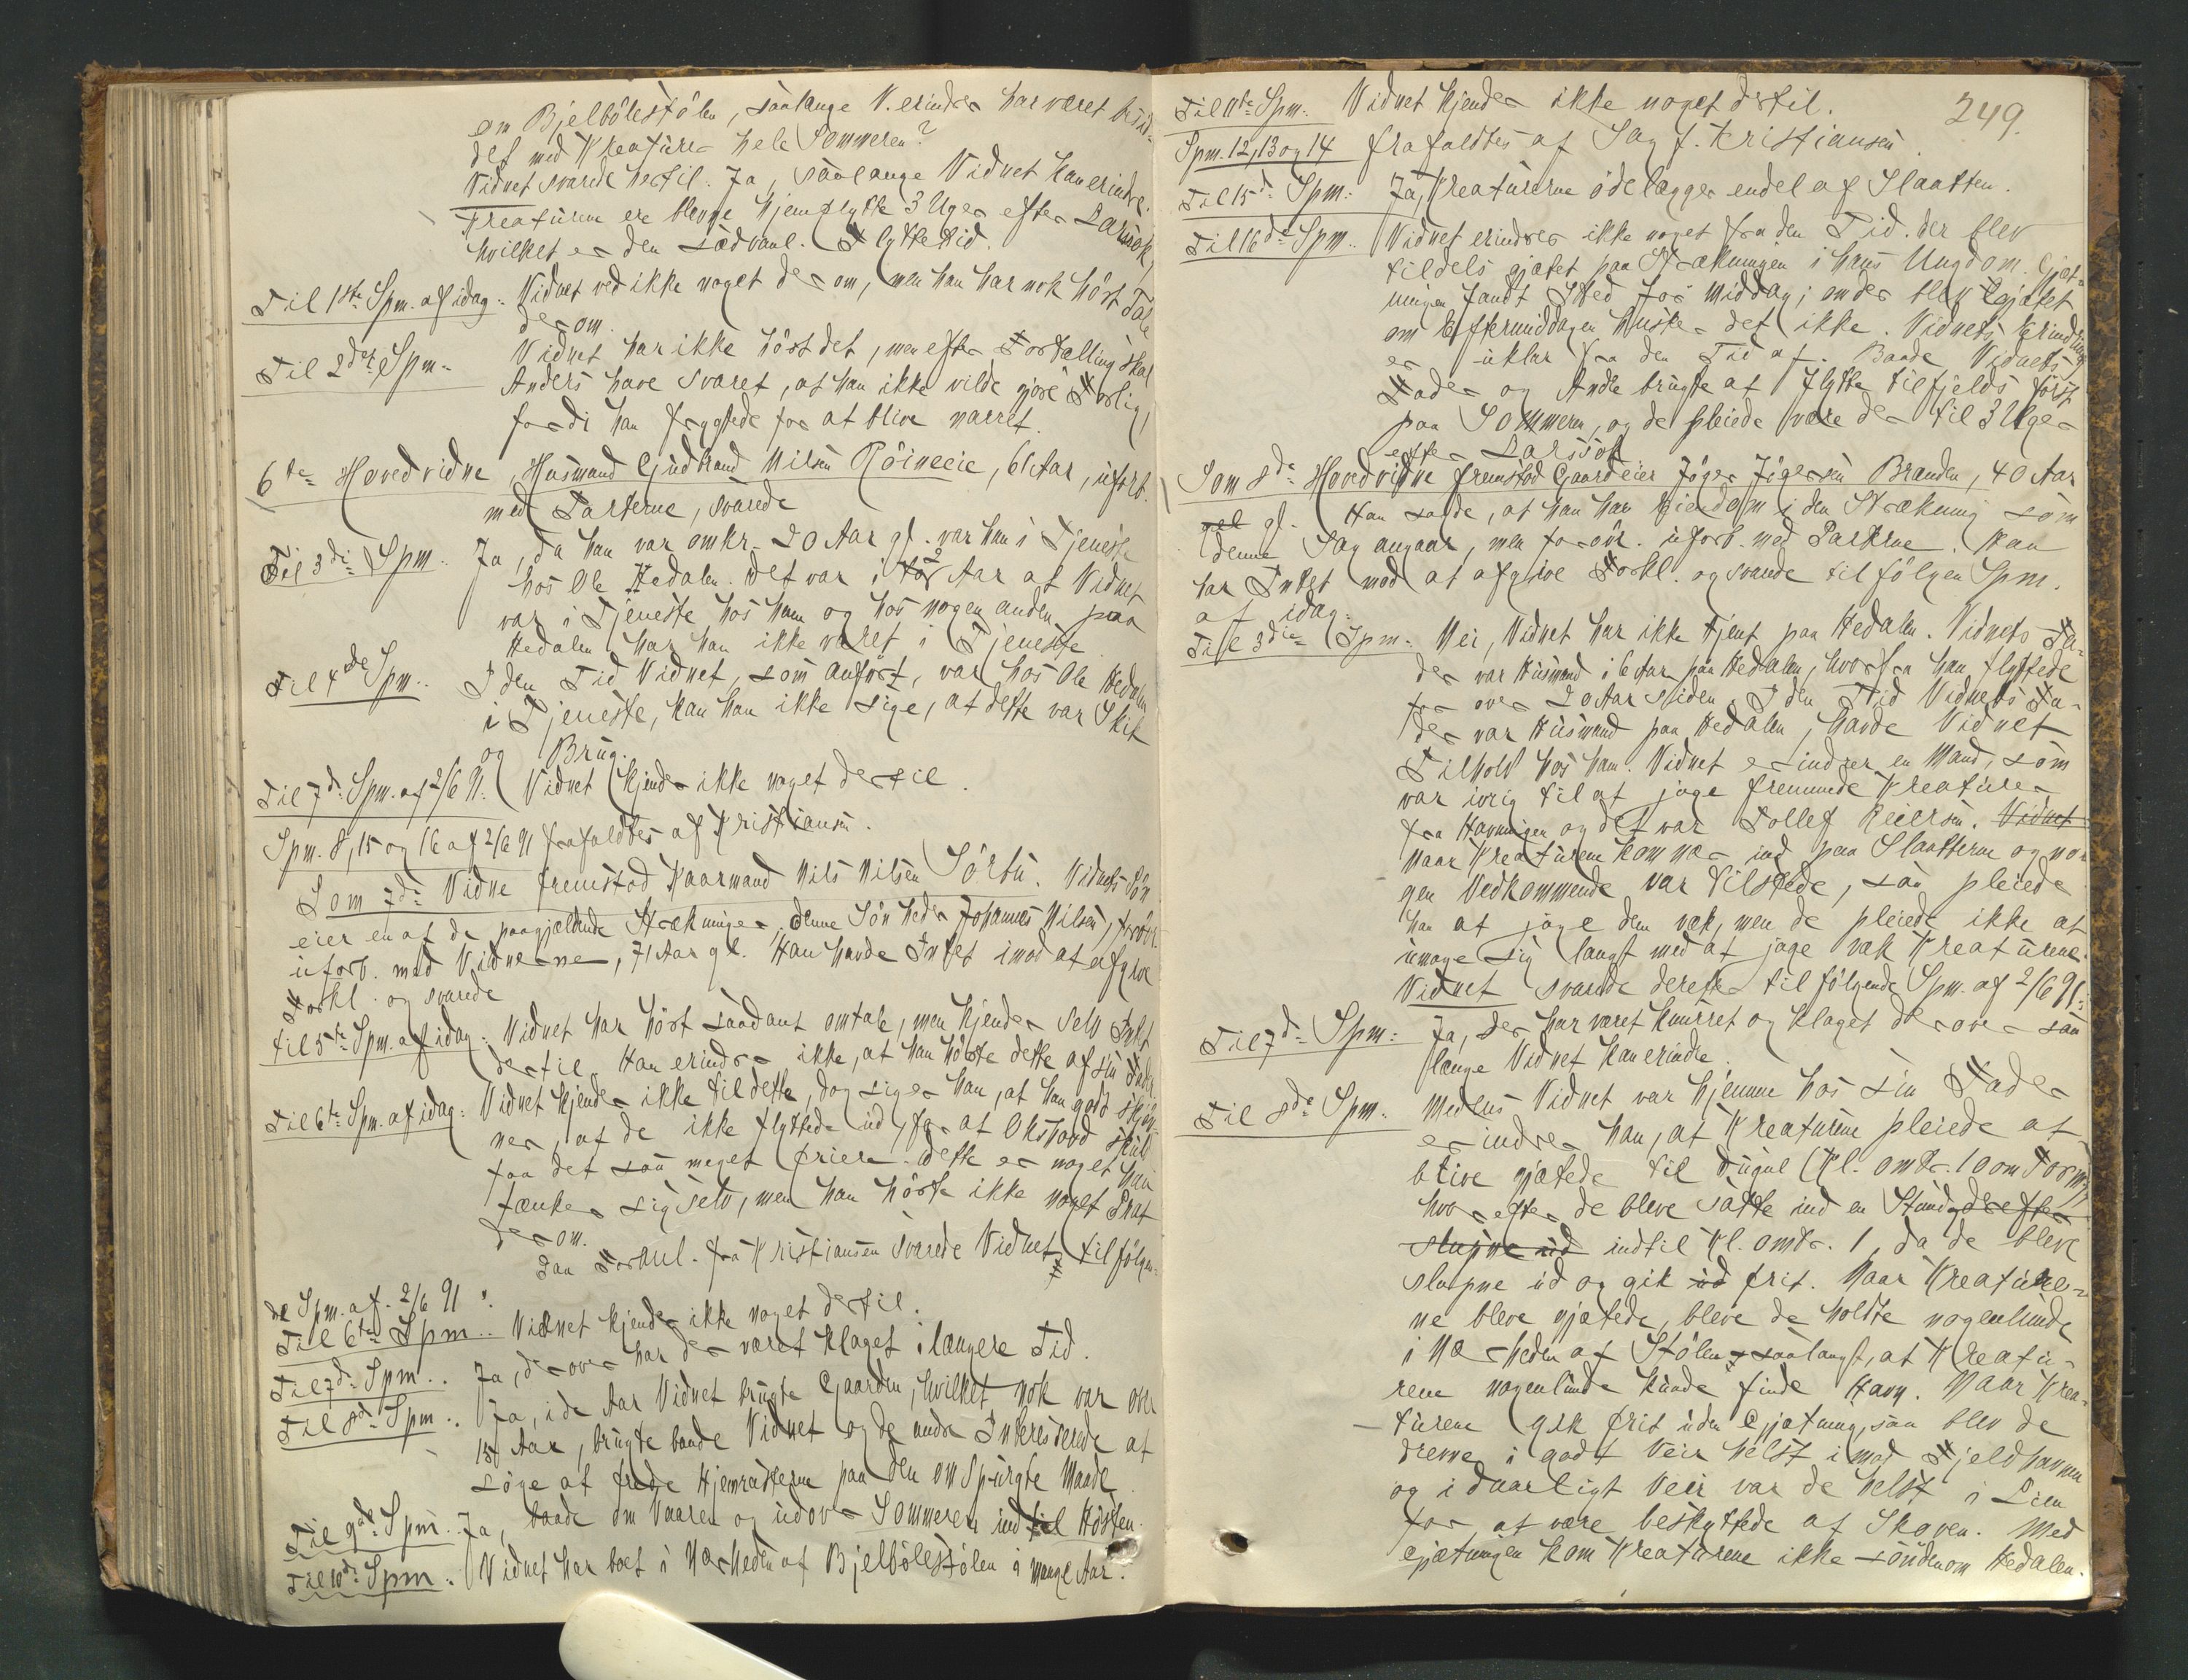 om Bjelbölestölen, saalange V. erindrer har været brú-
det med Kreaturer hele Sommeren?
Vidnet svarede hertil: Ja, saalange Vidnet kan erindre.
Kreaturene ere blevne hjemflytte 3 Uger efter Larsok,
hvilket er den sædvanl. Flyttetid.
Til 1ste Spm. af idag: Vidnet ved ikke noget derom, men han har nok hört Tale
derom.
Til 2det Spm. Vidnet har ikke hört det, men efter Fortælling skal
Anders have svaret, at han ikke vilde gjöre Forlig,
fordi han frygtede for at blive narret.
6te Hovedvidne, Husmand Gudbrand Nilsen Röineeie, 61 Aar, uforb.
med Parterne, svarede
Til 3die Spm. Ja, da han var omkr. 20 Aar gl. var han i Tjeneste
hos Ole Hedalen. Det var i 2 Aar at Vidnet
var i Tjeneste hos ham og hos nogen anden paa
Hedalen har han ikke været i Tjeneste.
Til 4de Spm.. I den Tid Vidnet, som anfört, var hos Ole Hedalen
i Tjeneste, kan han ikke sige, at dette var Skik
og Brug.
Til 7de Spm. af 2/6 91. Vidnet kjender ikke noget dertil.
Spm. 8, 15 og 16 af 2/6 91 frafaldtes af Kristiansen.
Som 7de Vidne fremstod Kaarmand Nils Nilsen Sörbu. Vidnets Sön
eier en af de paagjældende Strækninger, denne Sön heder Johannes Nilsen, forövr.
uforb. med Vidnerne, 71 Aar gl. Han havde Intet imod at afgive
Forkl. og svarede
til 5te Spm. af idag: Vidnet har hört saadant omtale, men kjender selv Intet
dertil. Han erindrer ikke, at han hörte dette af sin Fader.
Til 6te Spm. af idag: Vidnet kjender ikke til dette, dog siger han, at han godt skjön-
ner, at de ikke flyttede ud, for at Okshovd skuld
faa det saa meget friere. Dette er noget han
tænker sig selv, men han hörte ikke noget Snak
derom.
Paa Foranl. fra Kristiansen svarede Vidnet til fölgen-
de Spm. af. 2/6 91:
Til 6te Spm.. Vidnet kjender ikke noget dertil.
Til 7de Spm.. Ja, derover har der været klaget i længere Tid.
Til 8de Spm.. Ja, i de Aar Vidnet brugte Gaarden, hvilket nok var over
15 Aar, brugte baade Vidnet og de andre Interesserede at
söge at frede Hjemrasterne paa den omspurgte Maade
Til 9de Spm. Ja, baade om Vaaren og udover Sommeren indtil Hösten.
Til 10de Spm. Vidnet har boet i Nærheden af Bjelbölestölen i mange Aar.
249.
Til 11te Spm. Vidnet kjender ikke noget dertil.
Spm. 12, 13 og 14 frafaldtes af Sagf. Kristiansen.
Til 15de Spm: Ja, Kreaturerne ödelægger endel af Slaatten.
Til 16de Spm.. Vidnet erindrer ikke noget fra den Tid. der blev
tildels gjætet paa Strækningen i hans Ungdom. Gjæt-
ningen fandt Sted for Middag; om der blev gjætet
om Eftermiddagen husker det ikke. Vidnets Erindring
er uklar fra den Tid af. Baade Vidnets
Fader og Andre brugte at flytte tilfjelds först
paa Sommeren, og de pleiede være der til 3 Uger
efter Larssok.
Som 8de Hovedvidne fremstod Gaardeier Jöger Jögersen Branden, 40 Aar
gel gl. Han sagde, at han har Eiendom i den Strækning som
denne Sag angaar, men forövr. uforb. med Parterne. Han
har Intet mod at afgive Forkl. og svarede til fölgen Spm.
af idag:
Til 3die Spm. Nei, Vidnet har ikke tjent paa Hedalen. Vidnets Fa-
der var Husmand i 6 Aar paa Hedalen, hvorfra han flyttede
for over 20 Aar siden. I den Tid Vidnets Fa-
der var Husmand paa Hedalen, havde Vidnet
Tilhold hos ham. Vidnet erindrer en Mand, som
var ivrig til at jage fremmede Kreaturer
fra Havningen og det var Tollef Reiersen. Vidnet
Naar Kreaturene kommer ind paa Slaatterne og no-
gen Vedkommende var tilstede, saa pleiede
han at jage dem væk, men de pleiede ikke at
umage sig langt med at jage væk Kreaturene.
Vidnet svarede derefter til fölgende Spm. af 2/6 91:
Til 7de Spm: Ja, der har været knurret og klaget derover saa
længe Vidnet kan erindre.
Til 8de Spm. Medens Vidnet var hjemme hos sin Fader
erindrer han, at Kreaturene pleiede at
blive gjætede til Dugul (Kl. omtr. 10 om Form.),
hvorefter de bleve satte ind en Stund, derefter
slupne ud indtil Kl. omtr. 1, da de bleve
slupne ud og gik ud frit. Naar Kreature-
ne bleve gjætede, bleve de holdte nogenlunde
i Nærheden af Stölen, saalangt, at Kreatu-
rene nogenlunde kunde finde Havn. Naar Krea-
turene gik frit uden Gjætning, saa blev de
drevne i godt Veir helst imod Fjeldhavnen
og i daarligt Veir var de helst i Lien
for at være beskyttede af Skoven. Med
Gjætningen kom Kreaturene ikke söndenom Hedalen.